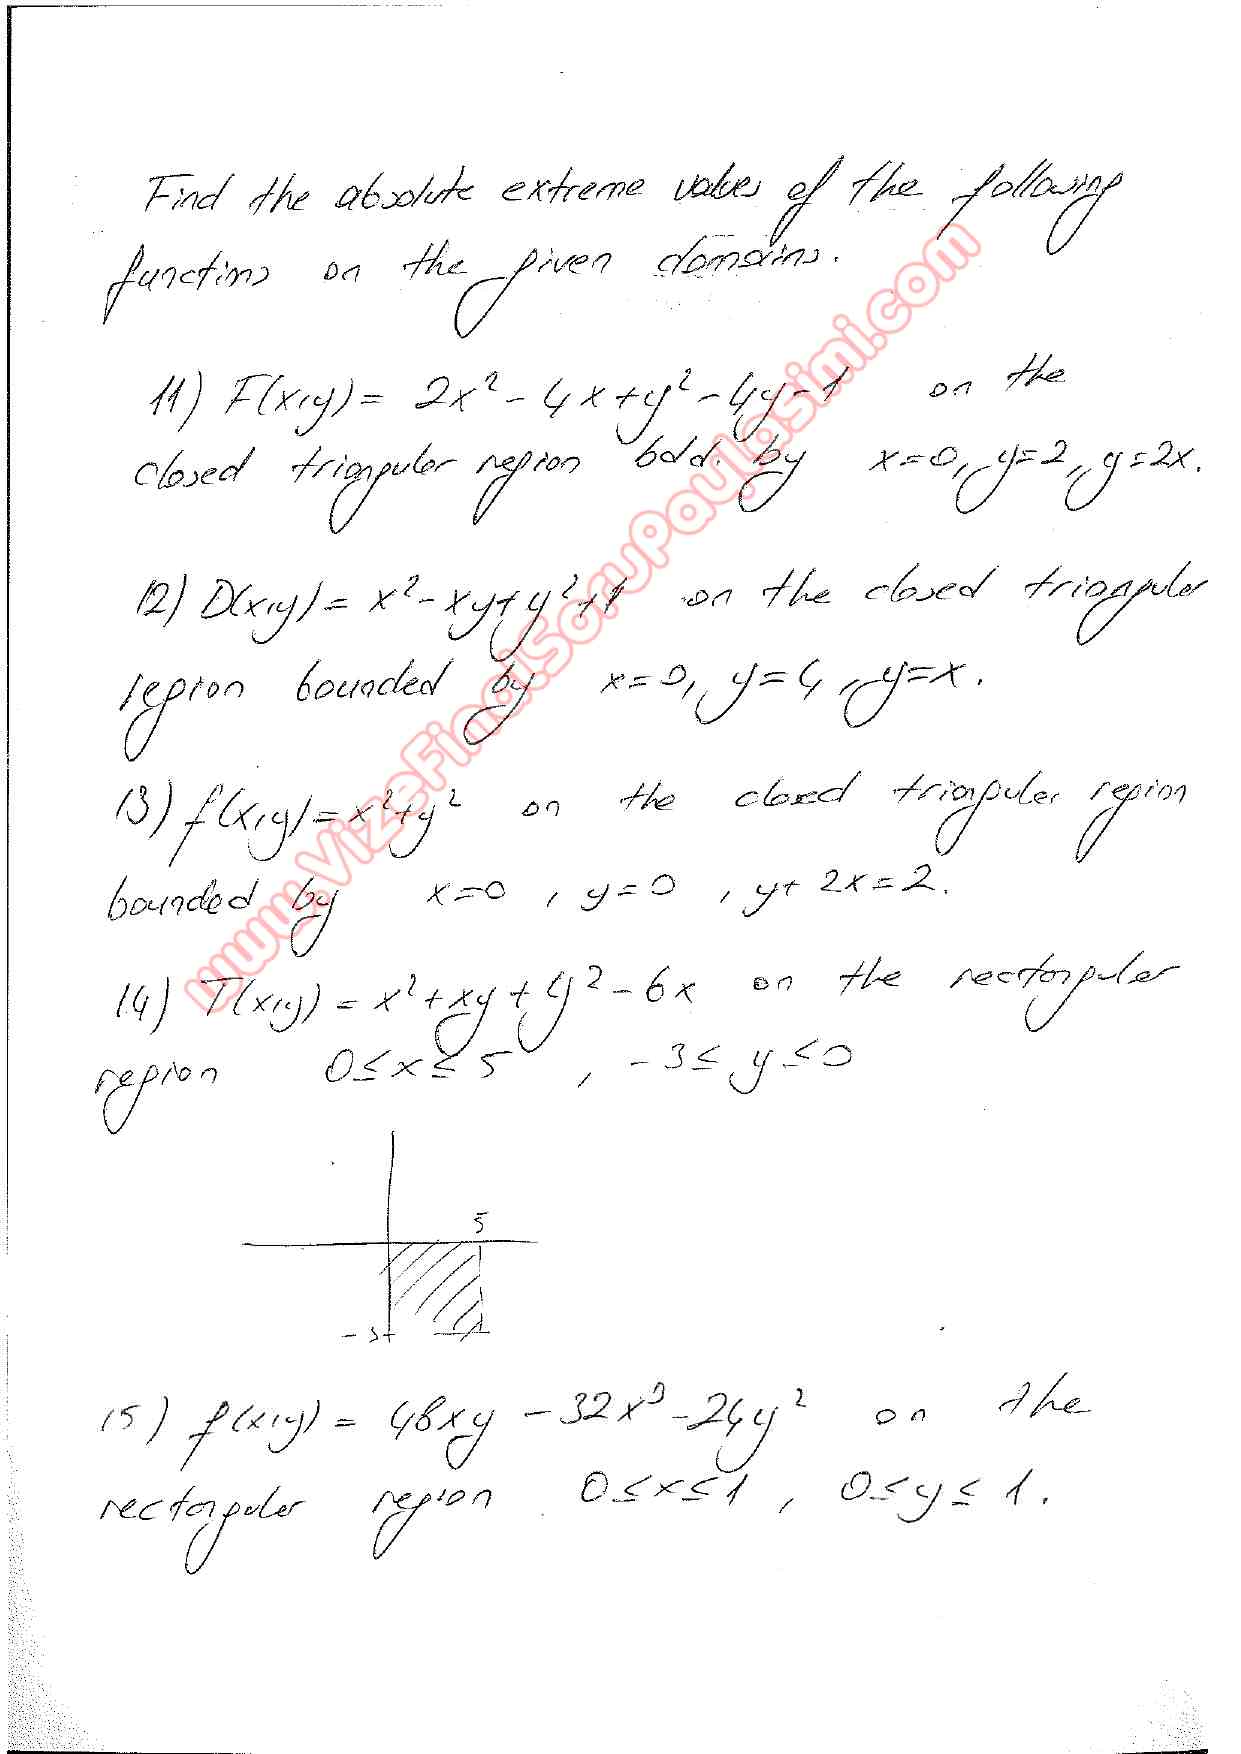 Find the absolute extreme values of the following
functions on the given domains.
11) F(x,y) = 2x² - 4x + y² - 4y - 1 on the
closed triangular region bdd. by x=0, y=2, y=2x.
12) D(x,y) = x² - xy + y² + 1 on the closed triangular
region bounded by x=0, y=4, y=x.
13) f(x,y) = x² + y² on the closed triangular region
bounded by x=0, y=0, y+2x=2.
14) T(x,y) = x² + xy + y² - 6x on the rectangular
region 0≤x≤5, -3≤y≤0
5
-3
15) f(x,y) = 48xy - 32x³ - 24y² on the
rectangular region 0≤x≤1, 0≤y≤1.
www.VizeFinalSoruPaylasimi.com